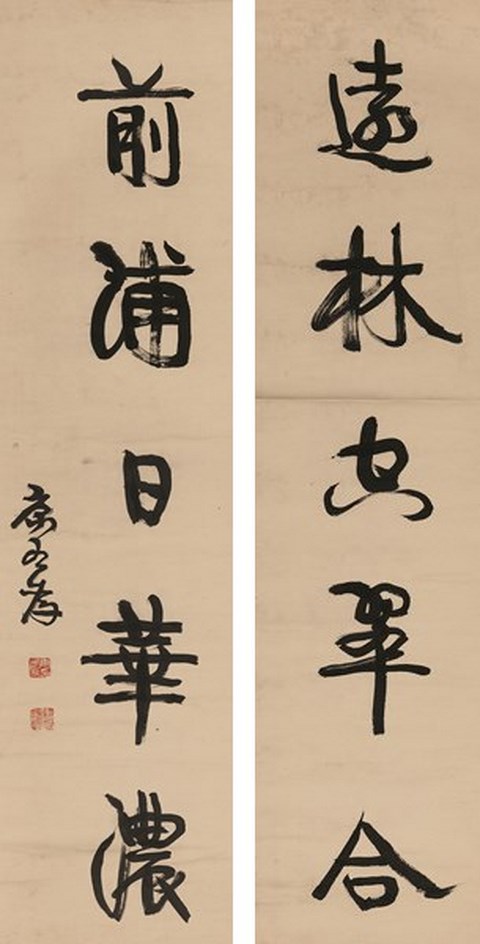 遠林空翠合
前浦日華濃
康有為